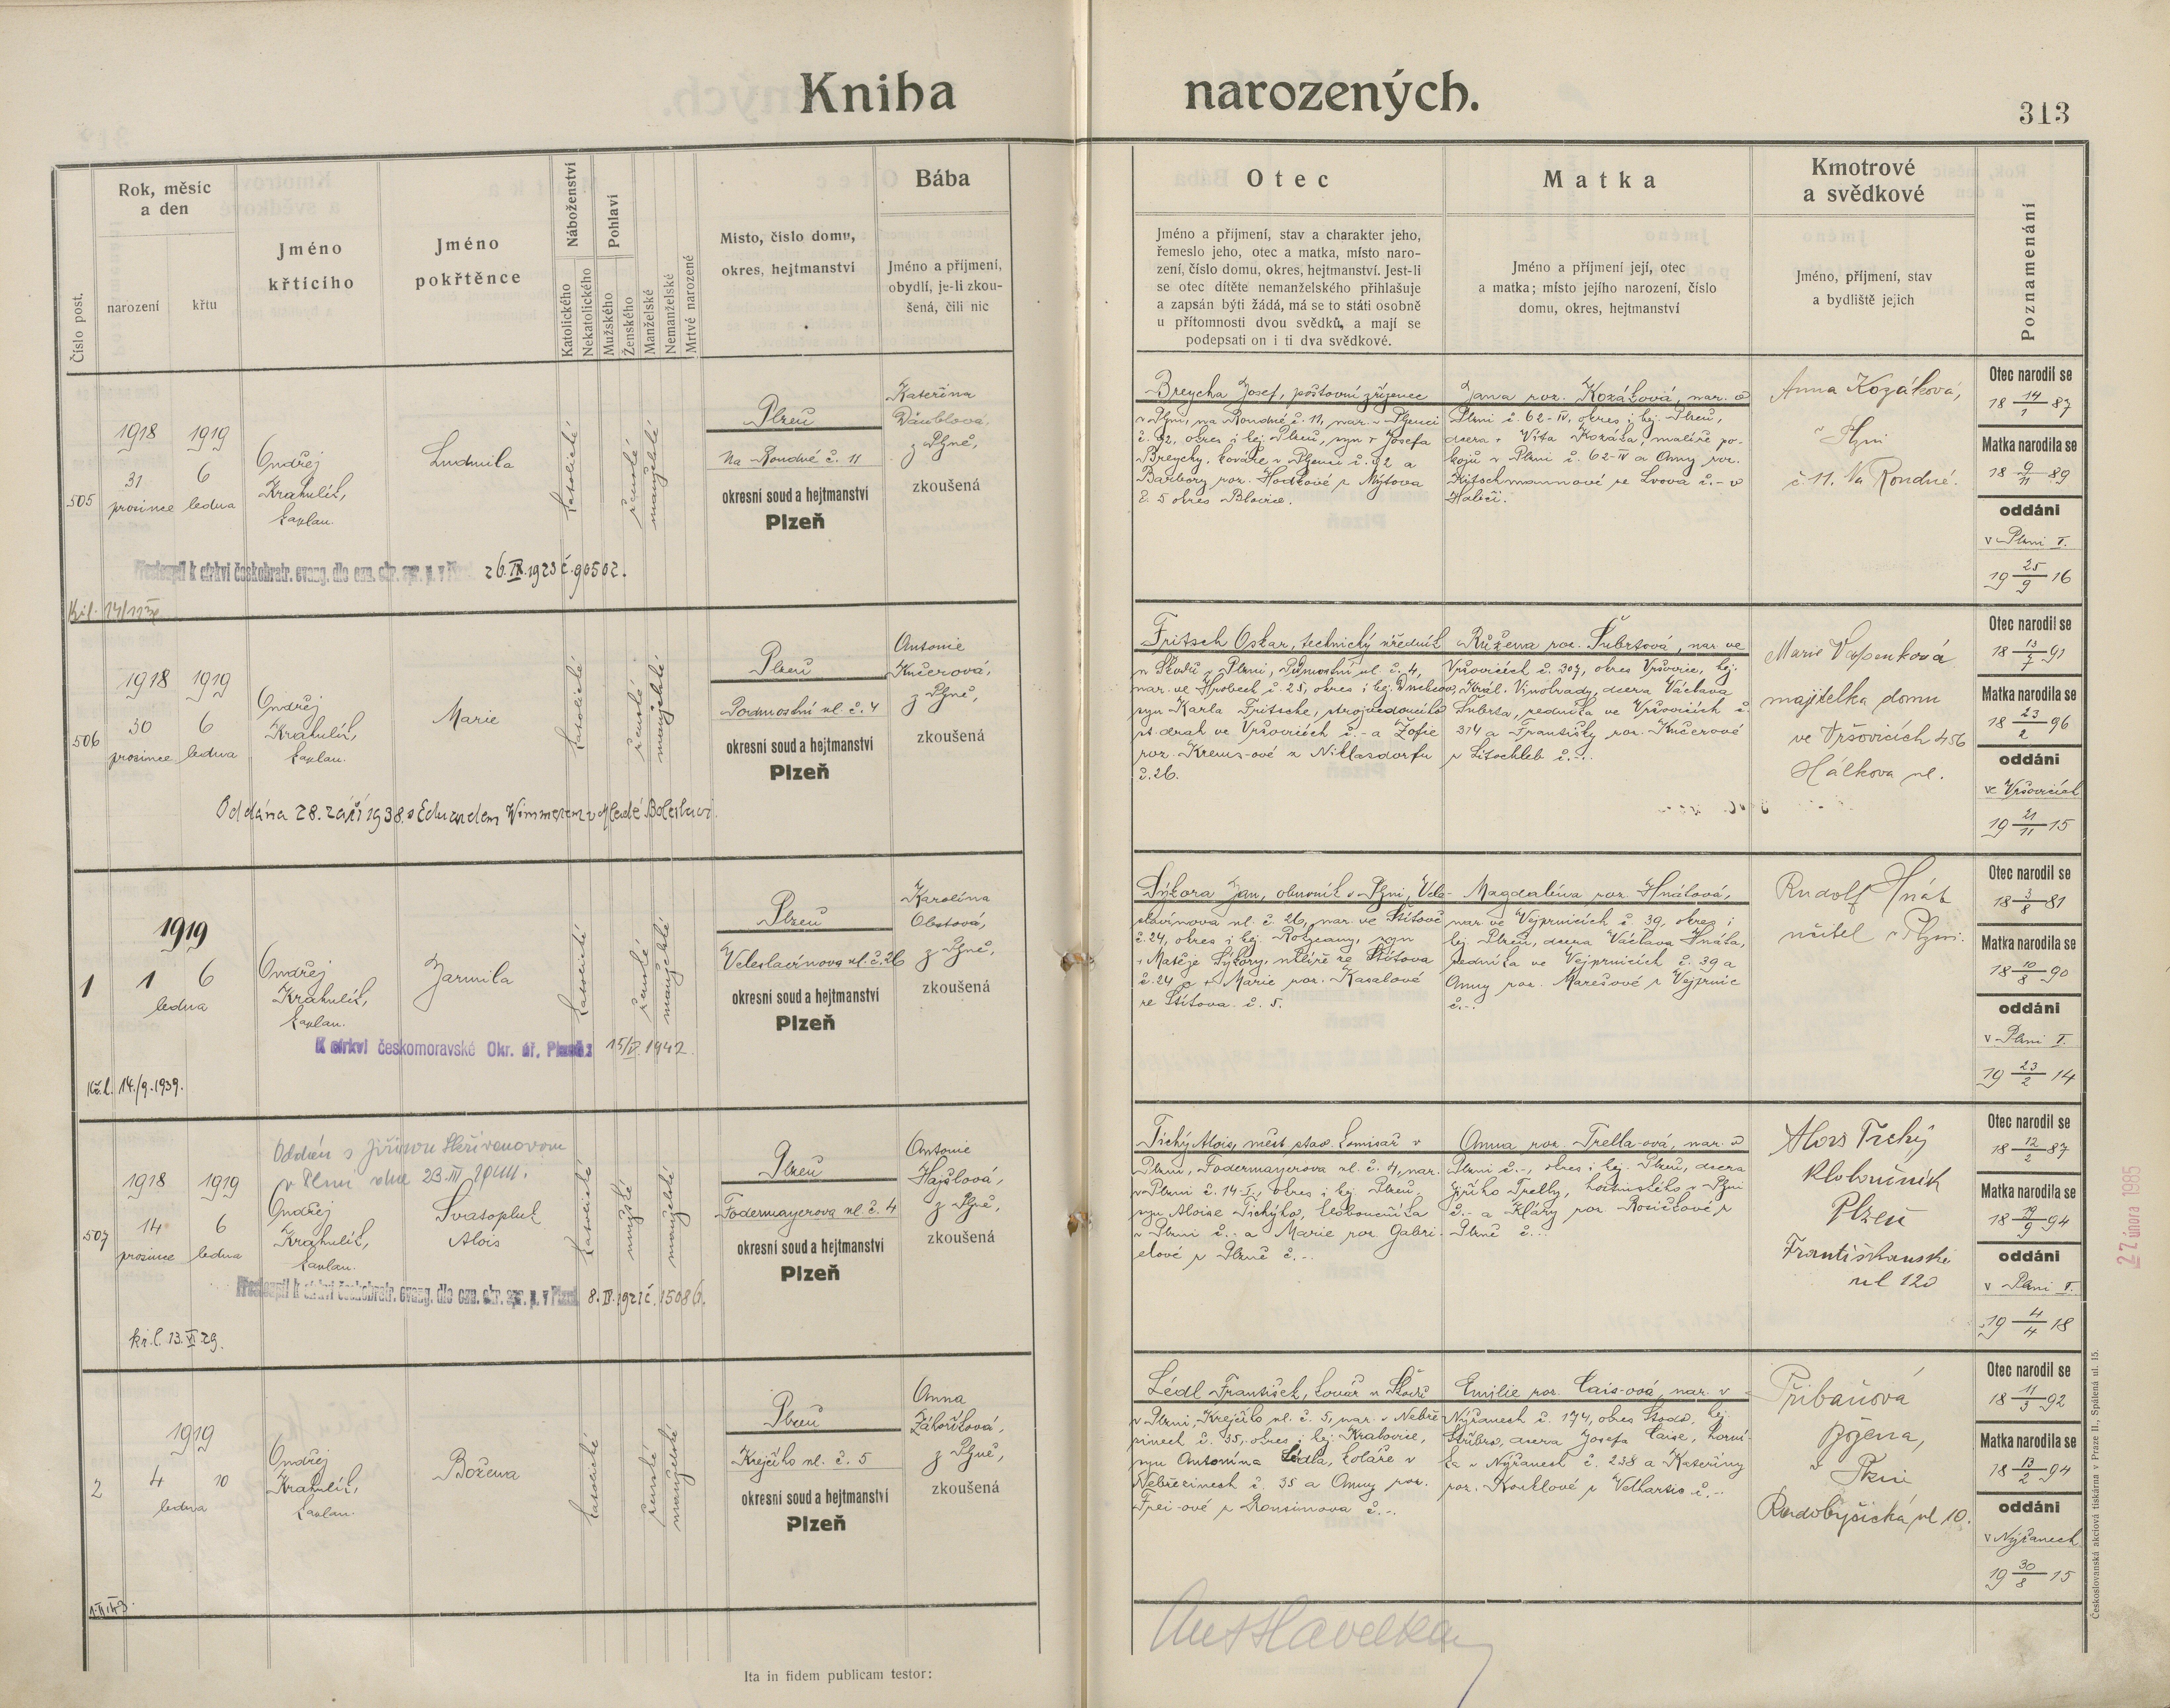 Kniha narozených.
313
Číslo post.
Rok, měsíc
a den
narození
křtu
Jméno
křtícího
Jméno
pokřtěnce
Náboženství
Katolického
Nekatolického
Pohlaví
Mužského
Ženského
Manželské
Nemanželské
Mrtvé narozené
Místo, číslo domu,
okres, hejtmanství
Bába
Jméno a příjmení,
obydlí, je-li zkou-
šená, čili nic
Otec
Jméno a příjmení, stav a charakter jeho,
řemeslo jeho, otec a matka, místo naro-
zení, číslo domu, okres, hejtmanství. Jest-li
se otec dítěte nemanželského přihlašuje
a zapsán býti žádá, má se to státi osobně
u přítomnosti dvou svědků, a mají se
podepsati on i ti dva svědkové.
Matka
Jméno a příjmení její, otec
a matka; místo jejího narození, číslo
domu, okres, hejtmanství
Kmotrové
a svědkové
Jméno, příjmení, stav
a bydliště jejich
Poznamenání
505
1918 1919
31 6
prosince ledna
Ondřej
Krahulík,
kaplan.
Ludmila
katolické
ženské
manželské
Plzeň
Na Roudné č. 11
okresní soud a hejtmanství
Plzeň
Kateřina
z Plzně,
zkoušená
Přestoupil k církvi českobratr. evang. dle ozn. okr. spr. p. v Plzni 26.IX.1923 č. 90502.
Breycha Josef, poštovní zřízenec
v Plzni, na Roudné č. 11, nar. v Plzenci
č. 92, okres i hej. Plzeň, syn † Josefa
Breychy, kováře v Plzenci č. 92 a
Barbory roz. Hodkové z Mýtova
č. 5 okres Blovice.
Jana roz. Kozáková, nar. v
Plzni č. 62-IV, okres i hej. Plzeň,
dcera † Víta Kozáka, malíře po-
kojů v Plzni č. 62-IV a Anny roz.
Kitschmannové ze Lvova č.- v
Haliči.
Anna Kozáková,
v Plzni
č 11. Na Roudné.
Otec narodil se
18 14/1 87
Matka narodila se
18 9/11 89
oddáni
v Plzni I.
19 25/9 16
506
1918 1919
30 6
prosince ledna
Ondřej
Krahulík,
kaplan.
Marie
katolické
ženské
manželské
Plzeň
Podmostní ul. č. 4
okresní soud a hejtmanství
Plzeň
Antonie
Kučerová,
z Plzně,
zkoušená
Oddána 28. září 1938 s Eduardem Wimmerem v Mladé Boleslavi.
Fritsch Oskar, technický úředník
u Škodů v Plzni, Podmostní ul. č. 4,
nar. ve Hrobech č. 25, okres i hej. Duchcov,
syn Karla Fritsche, strojvedoucího
st. drah ve Vršovicích č.- a Žofie
roz. Kreus-ové z Niklasdorfu
č. 26.
Růžena roz. Šubrtová, nar. ve
Vršovicích č. 307, okres Vršovice, hej.
Král. Vinohrady, dcera Václava
Šubrta, rolníka ve Vršovicích č.
314 a Františky roz. Kučerové
z Litochleb č.-.
Marie
majitelka domu
ve Vršovicích 456
Hálkova ul.
Otec narodil se
18 13/7 91
Matka narodila se
18 23/2 96
oddáni
ve Vršovicích
19 21/11 15
1
1919
1 6
ledna
Ondřej
Krahulík,
kaplan.
Jarmila
katolické
ženské
manželské
Plzeň
Veleslavínova ul. č. 26
okresní soud a hejtmanství
Plzeň
Karolína
Obstová,
z Plzně,
zkoušená
K církvi českomoravské Okr. úř. Plzeň 15/V. 1942.
Kř. l. 14./9. 1939.
Sýkora Jan, obuvník v Plzni, Vele-
slavínova ul. č. 26, nar. ve Štítově
č. 24, okres i hej. Rokycany, syn
† Matěje Sýkory, ze Štítova
č. 24 a † Marie roz. Kasalové
ze Štítova č. 5.
Magdaléna roz. Hnátová,
nar. ve Vejprnicích č. 39, okres i
hej. Plzeň, dcera Václava Hnáta,
rolníka ve Vejprnicích č. 39 a
Anny roz. Marešové z Vejprnic
č.-.
Rudolf Hnát
učitel v Plzni.
Otec narodil se
18 3/8 81
Matka narodila se
18 10/8 90
oddáni
v Plzni I.
19 23/2 14
507
Oddán s Jiřinou Skřivanovou
v Plzni dne 23.III.
1918 1919
14 6
prosince ledna
Ondřej
Krahulík,
kaplan.
Svatopluk
Alois
katolické
mužské
manželské
Plzeň
Fodermayerova ul. č. 4
okresní soud a hejtmanství
Plzeň
Antonie
Hajšlová,
z Plzně,
zkoušená
Přestoupil k církvi českobratr. evang. dle ozn. okr. spr. p. v Plzni 8. IV. 1921 č. 15086.
kř. l. 13.VI 29.
Tichý Alois, měst. stav. komisař v
Plzni, Fodermayerova ul. č. 4, nar.
v Plzni č. 14-I, okres i hej. Plzeň,
syn Aloise Tichýho, kloboučníka
v Plzni č.- a Marie roz. Gabri-
elové z Plzně č.-.
Anna roz. Trella-ová, nar. v
Plzni č.-, okres i hej. Plzeň, dcera
Jiřího Trelly, hostinského v Plzni
č.- a Kláry roz. Rosičkové z
Plzně č.-.
Alois Tichý
kloboučník
Plzeň
Františkanská
ul 120
Otec narodil se
18 12/2 87
Matka narodila se
18 19/9 94
oddáni
v Plzni I.
19 4/4 18
2
1919
4 10
ledna
Ondřej
Krahulík,
kaplan.
Božena
katolické
ženské
manželské
Plzeň
Krejčího ul. č. 5
okresní soud a hejtmanství
Plzeň
Anna
Záhoříková,
z Plzně,
zkoušená
Lédl František, kovář u Škodů
v Plzni, Krejčího ul. č. 5, nar. v Nebře-
zinech č. 35, okres i hej. Kralovice,
syn Antonína Lédla, koláře v
Nebřezinech č. 35 a Anny roz.
Frei-ové z Ronšinova č.-.
Emilie roz. Cais-ová, nar. v
Nýřanech č. 174, okres Stod, hej.
Stříbro, dcera Josefa Caise, horní-
ka v Nýřanech č. 238 a Kateřiny
roz. Kouklové z Velhartic č.-.
Přibáňová
Božena,
v Plzni
Radobyčická ul 10.
Otec narodil se
18 11/3 92
Matka narodila se
18 13/2 94
oddáni
v Nýřanech
19 30/8 15
Ant Havelka
Ita in fidem publicam testor:
Českoslovanská akciová tiskárna v Praze II., Spálená ul. 15.
27 února 1985